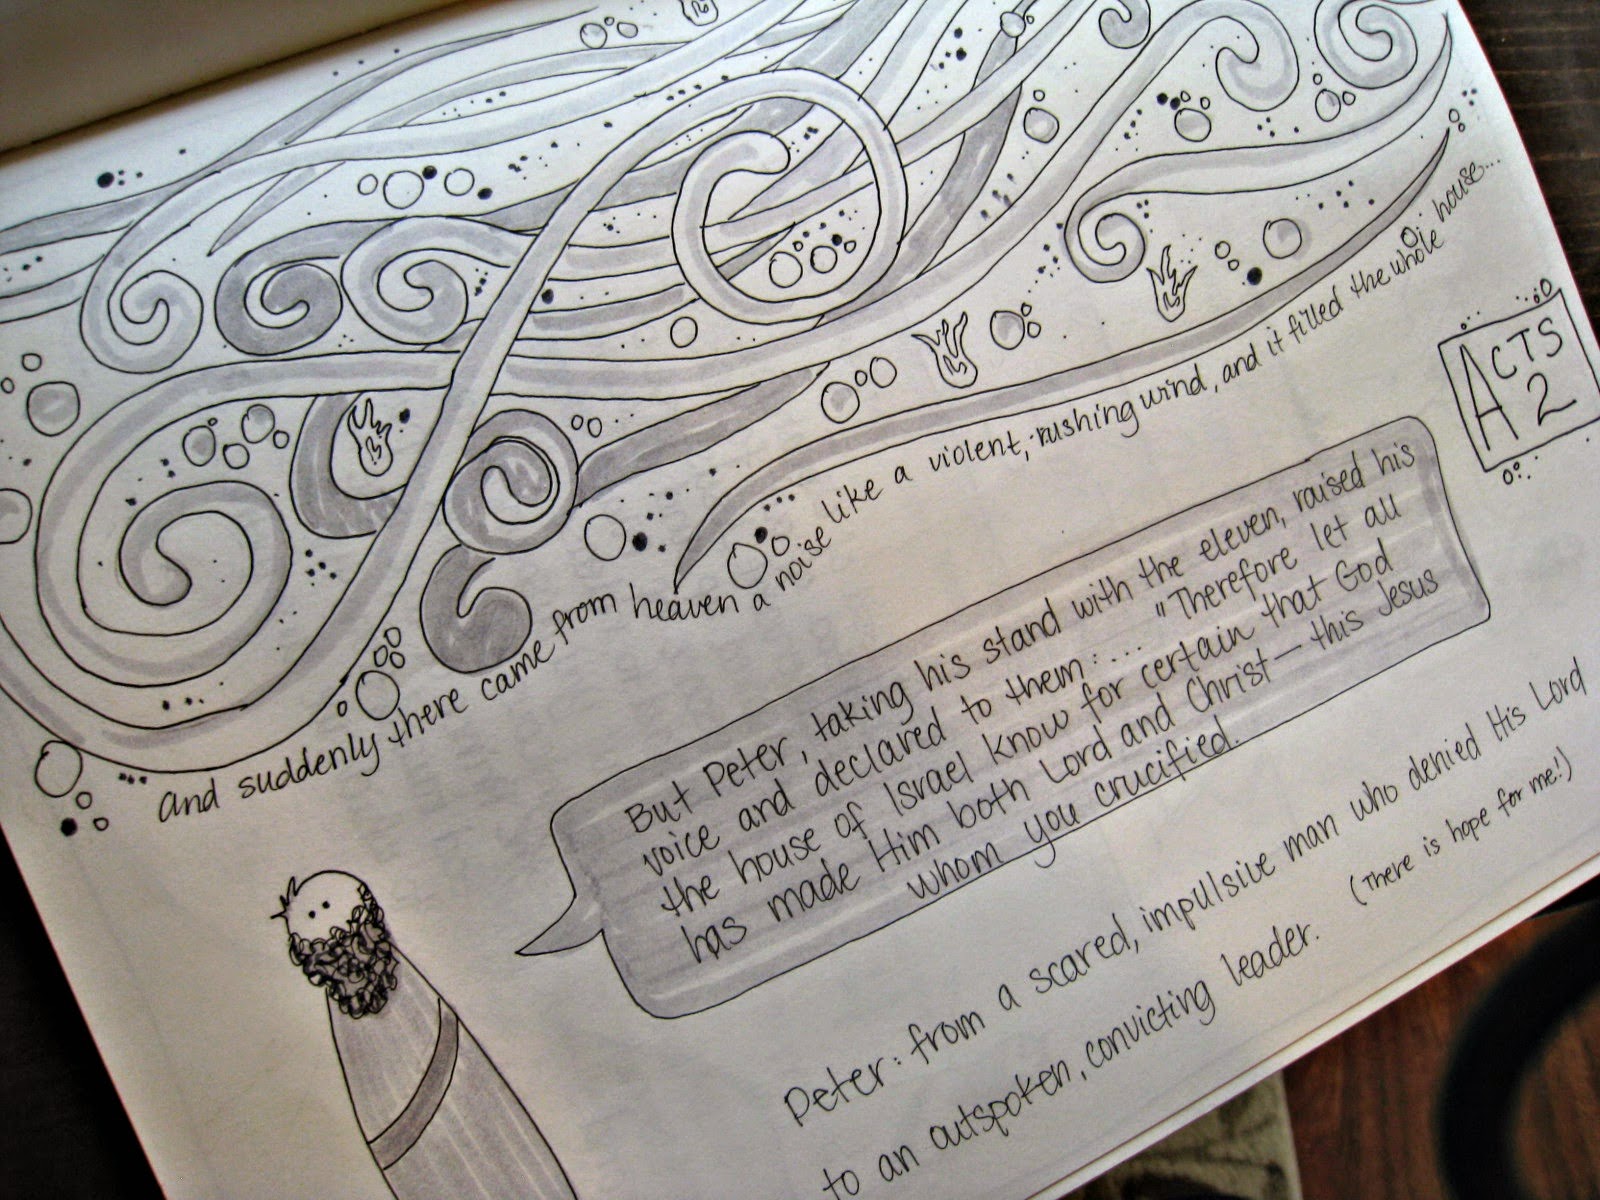 And suddenly there came from heaven a noise like a violent, rushing wind, and it filled the whole house...
ACTS
2
But Peter, taking his stand with the eleven, raised his
voice and declared to them:... "Therefore let all
the house of Israel know for certain that God
has made Him both Lord and Christ — this Jesus
whom you crucified.
Peter: from a scared, impulsive man who denied His Lord
to an outspoken, convicting leader. (There is hope for me!)